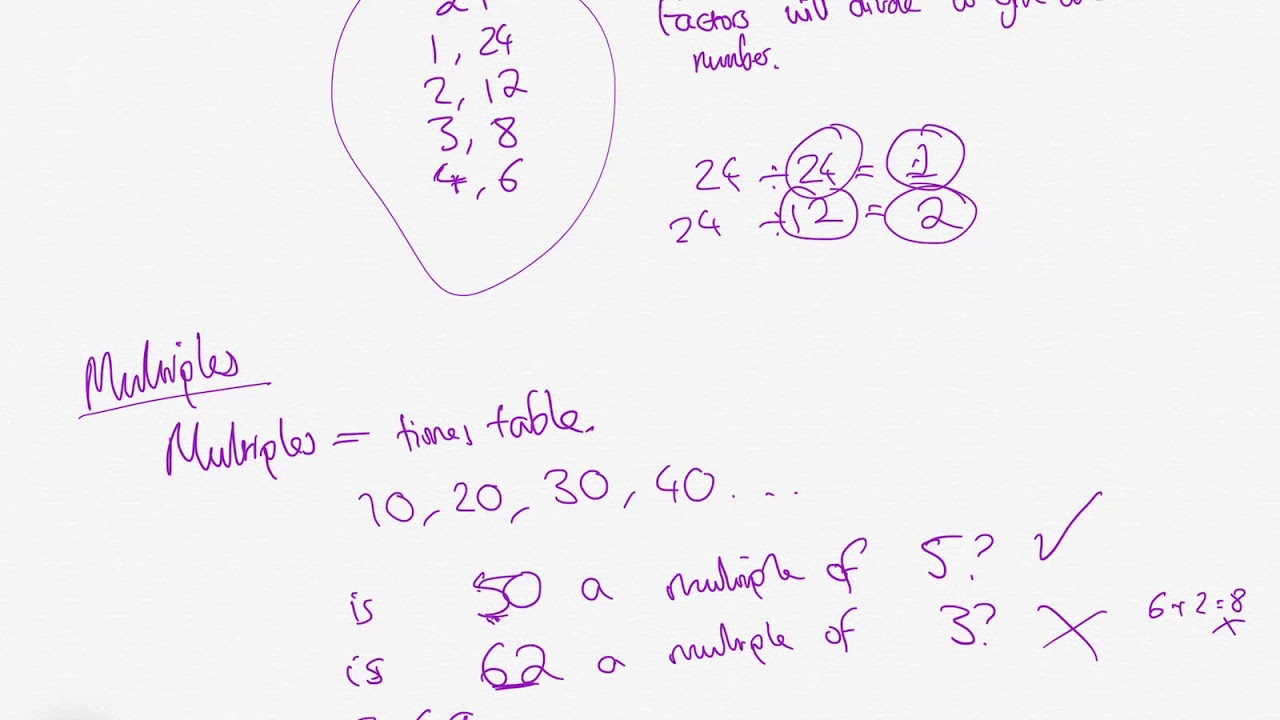 24
1, 24
2, 12
3, 8
4, 6
factors will divide to give
number.
24 ÷ 24 = 1
24 ÷ 12 = 2
Multiples
Multiples = times table.
10, 20, 30, 40 ...
is 50 a multiple of 5? ✓
is 62 a multiple of 3? X
6 + 2 = 8
X